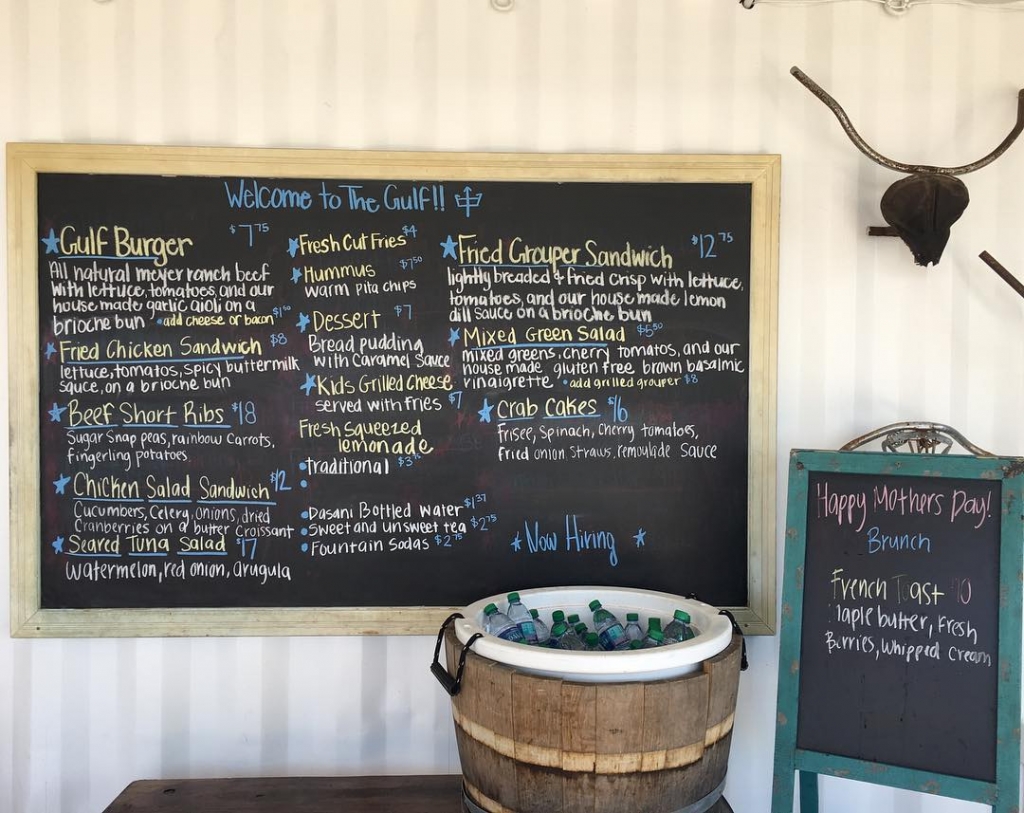 Welcome to The Gulf!!
Gulf Burger $7.75
All natural meyer ranch beef
with lettuce, tomatoes, and our
house made garlic aioli on a
brioche bun • add cheese or bacon $1.00
Fried Chicken Sandwich $8
lettuce, tomatos, spicy buttermilk
sauce, on a brioche bun
Beef Short Ribs $18
Sugar Snap peas, rainbow Carrots,
fingerling potatoes
Chicken Salad Sandwich $12
Cucumbers, Celery, onions, dried
Cranberries on a butter Croissant
Seared Tuna Salad $17
Watermelon, red onion, arugula
Fresh Cut Fries $4
Hummus $7.50
warm pita chips
Dessert $7
Bread pudding
with Caramel Sauce
Kids Grilled Cheese
served with fries $7
Fresh Squeezed
lemonade
• traditional
• Dasani Bottled Water $1.37
• Sweet and unsweet tea $2.75
• Fountain Sodas $2.75
Fried Grouper Sandwich $12.75
lightly breaded & fried crisp with lettuce,
tomatoes, and our house made lemon
dill sauce on a brioche bun
Mixed Green Salad $5.50
mixed greens, cherry tomatos, and our
house made gluten free brown basalmic
vinaigrette • add grilled grouper $8
Crab Cakes $16
frisee, Spinach, Cherry tomatoes,
fried onion straws, remoulade sauce
Now Hiring
Happy Mothers Day!
Brunch
French Toast
Berries, Whipped Cream
butter, Fresh